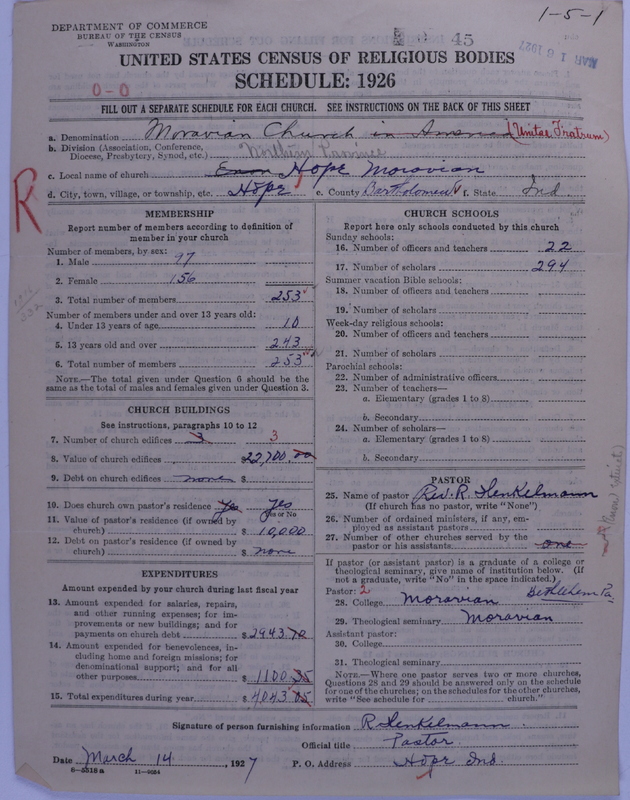 1-5-1
DEPARTMENT OF COMMERCE
BUREAU OF THE CENSUS
WASHINGTON
45
MAR 16 1927
UNITED STATES CENSUS OF RELIGIOUS BODIES
SCHEDULE: 1926
0-0
FILL OUT A SEPARATE SCHEDULE FOR EACH CHURCH. SEE INSTRUCTIONS ON THE BACK OF THIS SHEET
a. Denomination Moravian Church in America (Unitas Fratrum)
b. Division (Association, Conference,
Diocese, Presbytery, Synod, etc.) Northern Province
c. Local name of church Hope Moravian
d. City, town, village, or township, etc. Hope e. County Bartholomew f. State Ind
R
MEMBERSHIP
Report number of members according to definition of
member in your church
Number of members, by sex:
1. Male 97
2. Female 156
3. Total number of members 253
Number of members under and over 13 years old:
4. Under 13 years of age 10
5. 13 years old and over 243
6. Total number of members 253
NOTE.—The total given under Question 6 should be the
same as the total of males and females given under Question 3.
CHURCH BUILDINGS
See instructions, paragraphs 10 to 12
7. Number of church edifices 3 3
8. Value of church edifices $22,700.00
9. Debt on church edifices none $
10. Does church own pastor's residence Yes Yes
Yes or No
11. Value of pastor's residence (if owned by
church) $ 10,000
12. Debt on pastor's residence (if owned by
church) $ none
EXPENDITURES
Amount expended by your church during last fiscal year
13. Amount expended for salaries, repairs,
and other running expenses; for im-
provements or new buildings; and for
payments on church debt $2943.70
14. Amount expended for benevolences, in-
cluding home and foreign missions; for
denominational support; and for all
other purposes $1100.35
15. Total expenditures during year $4043.05
CHURCH SCHOOLS
Report here only schools conducted by this church
Sunday schools:
16. Number of officers and teachers 22
17. Number of scholars 294
Summer vacation Bible schools:
18. Number of officers and teachers
19. Number of scholars
Week-day religious schools:
20. Number of officers and teachers
21. Number of scholars
Parochial schools:
22. Number of administrative officers
23. Number of teachers—
a. Elementary (grades 1 to 8)
b. Secondary
24. Number of scholars—
a. Elementary (grades 1 to 8)
b. Secondary
PASTOR
25. Name of pastor Rev. R. Henkelmann
(If church has no pastor, write "None")
26. Number of ordained ministers, if any, em-
ployed as assistant pastors
27. Number of other churches served by the
pastor or his assistants one
If pastor (or assistant pastor) is a graduate of a college or
theological seminary, give name of institution below. (If
not a graduate, write "No" in the space indicated.)
Pastor: 2 Bethlehem Pa.
28. College Moravian
29. Theological seminary Moravian
Assistant pastor:
30. College
31. Theological seminary
NOTE.—Where one pastor serves two or more churches,
Questions 28 and 29 should be answered only on the schedule
for one of the churches; on the schedules for the other churches,
write "See schedule for church."
Signature of person furnishing information R Henkelmann
Official title Pastor
Date March 14, 1927 P. O. Address Hope Ind.
8-5518a 11-9054